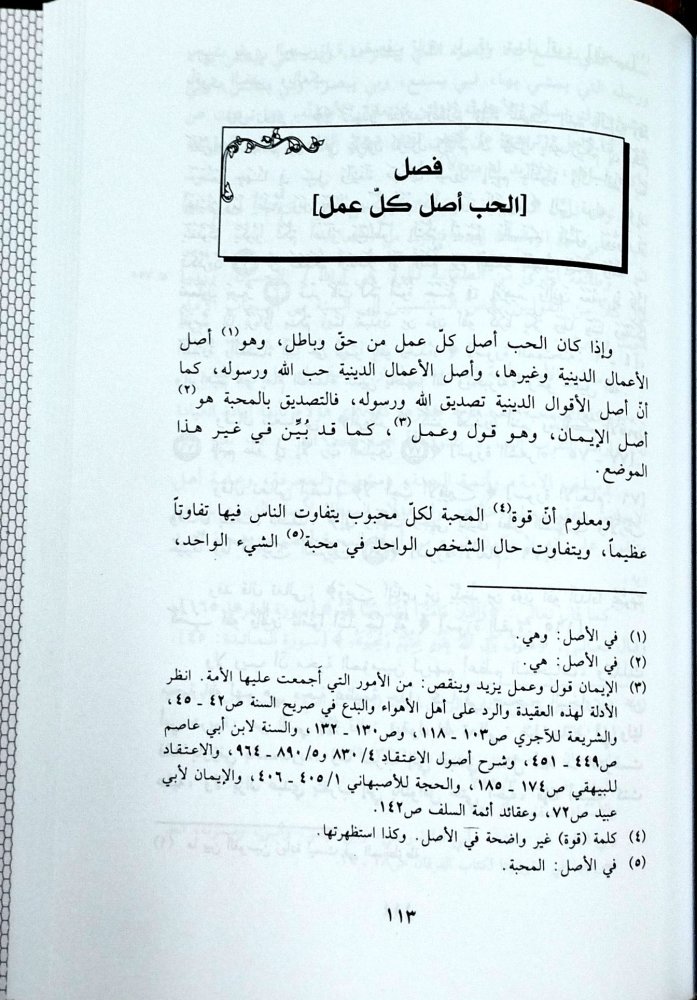 فصل
[الحب أصل كلّ عمل]
وإذا كان الحب أصل كلّ عمل من حقّ وباطل، وهو(١) أصل
الأعمال الدينية وغيرها، وأصل الأعمال الدينية حب الله ورسوله، كما
أنّ أصل الأقوال الدينية تصديق الله ورسوله، فالتصديق بالمحبة هو(٢)
أصل الإيمان، وهو قول وعمل(٣)، كما قد بُيِّن في غير هذا
الموضع.
ومعلوم أنّ قوة(٤) المحبة لكلّ محبوب يتفاوت الناس فيها تفاوتاً
عظيماً، ويتفاوت حال الشخص الواحد في محبة(٥) الشيء الواحد،
(١) في الأصل: وهي.
(٢) في الأصل: هي.
(٣) الإيمان قول وعمل يزيد وينقص: من الأمور التي أجمعت عليها الأمة. انظر
الأدلة لهذه العقيدة والرد على أهل الأهواء والبدع في صريح السنة ص٤٢ ـ ٤٥،
والشريعة للآجري ص١٠٣ ـ ١١٨، وص١٣٠ ـ ١٣٢، والسنة لابن أبي عاصم
ص٤٤٩ ـ ٤٥١، وشرح أصول الاعتقاد ٨٣٠/٤ و٨٩٠/٥ ـ ٩٦٤، والاعتقاد
للبيهقي ص١٧٤ ـ ١٨٥، والحجة للأصبهاني ٤٠٥/١ ـ ٤٠٦، والإيمان لأبي
عبيد ص٧٢، وعقائد أئمة السلف ص١٤٢.
(٤) كلمة (قوة) غير واضحة في الأصل. وكذا استظهرتها.
(٥) في الأصل: المحبة.
١١٣